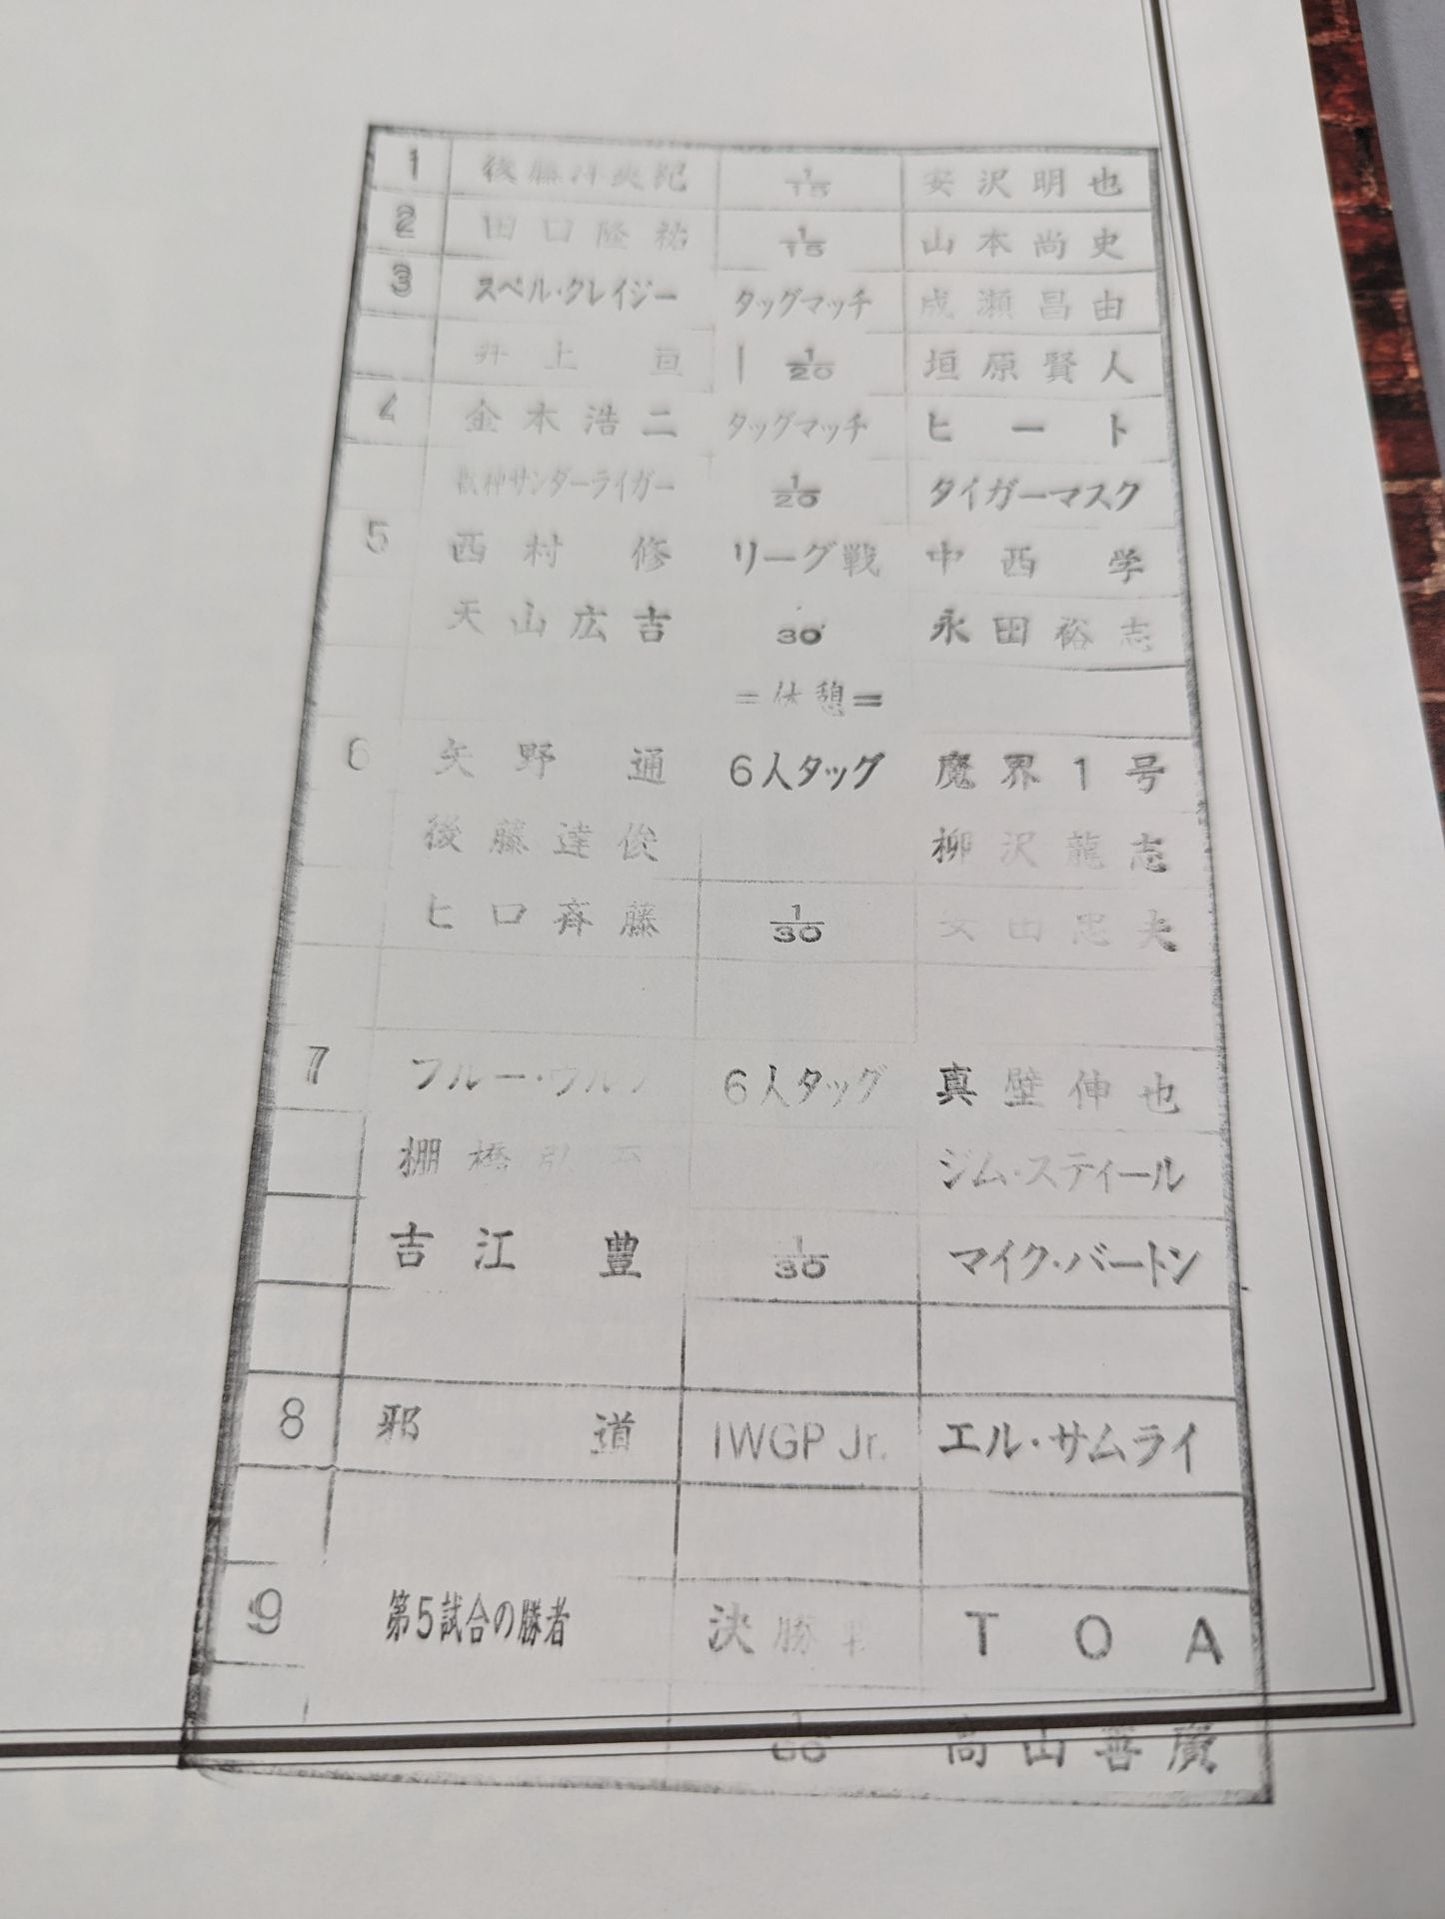 1 後藤洋央紀 1/15 安沢明也
2 田口隆祐 1/15 山本尚史
3 スペル・クレイジー タッグマッチ 成瀬昌由
井上亘 1/20 垣原賢人
4 金本浩二 タッグマッチ ヒート
獣神サンダーライガー 1/20 タイガーマスク
5 西村修 リーグ戦 中西学
天山広吉 30' 永田裕志
=休憩=
6 矢野通 6人タッグ 魔界1号
後藤達俊 柳沢龍志
ヒロ斉藤 1/30 安田忠夫
7 ブルー・ウルフ 6人タッグ 真壁伸也
棚橋弘至 ジム・スティール
吉江豊 1/30 マイク・バートン
8 邪道 IWGP Jr. エル・サムライ
9 第5試合の勝者 決勝戦 TOA
1/60 高山善廣